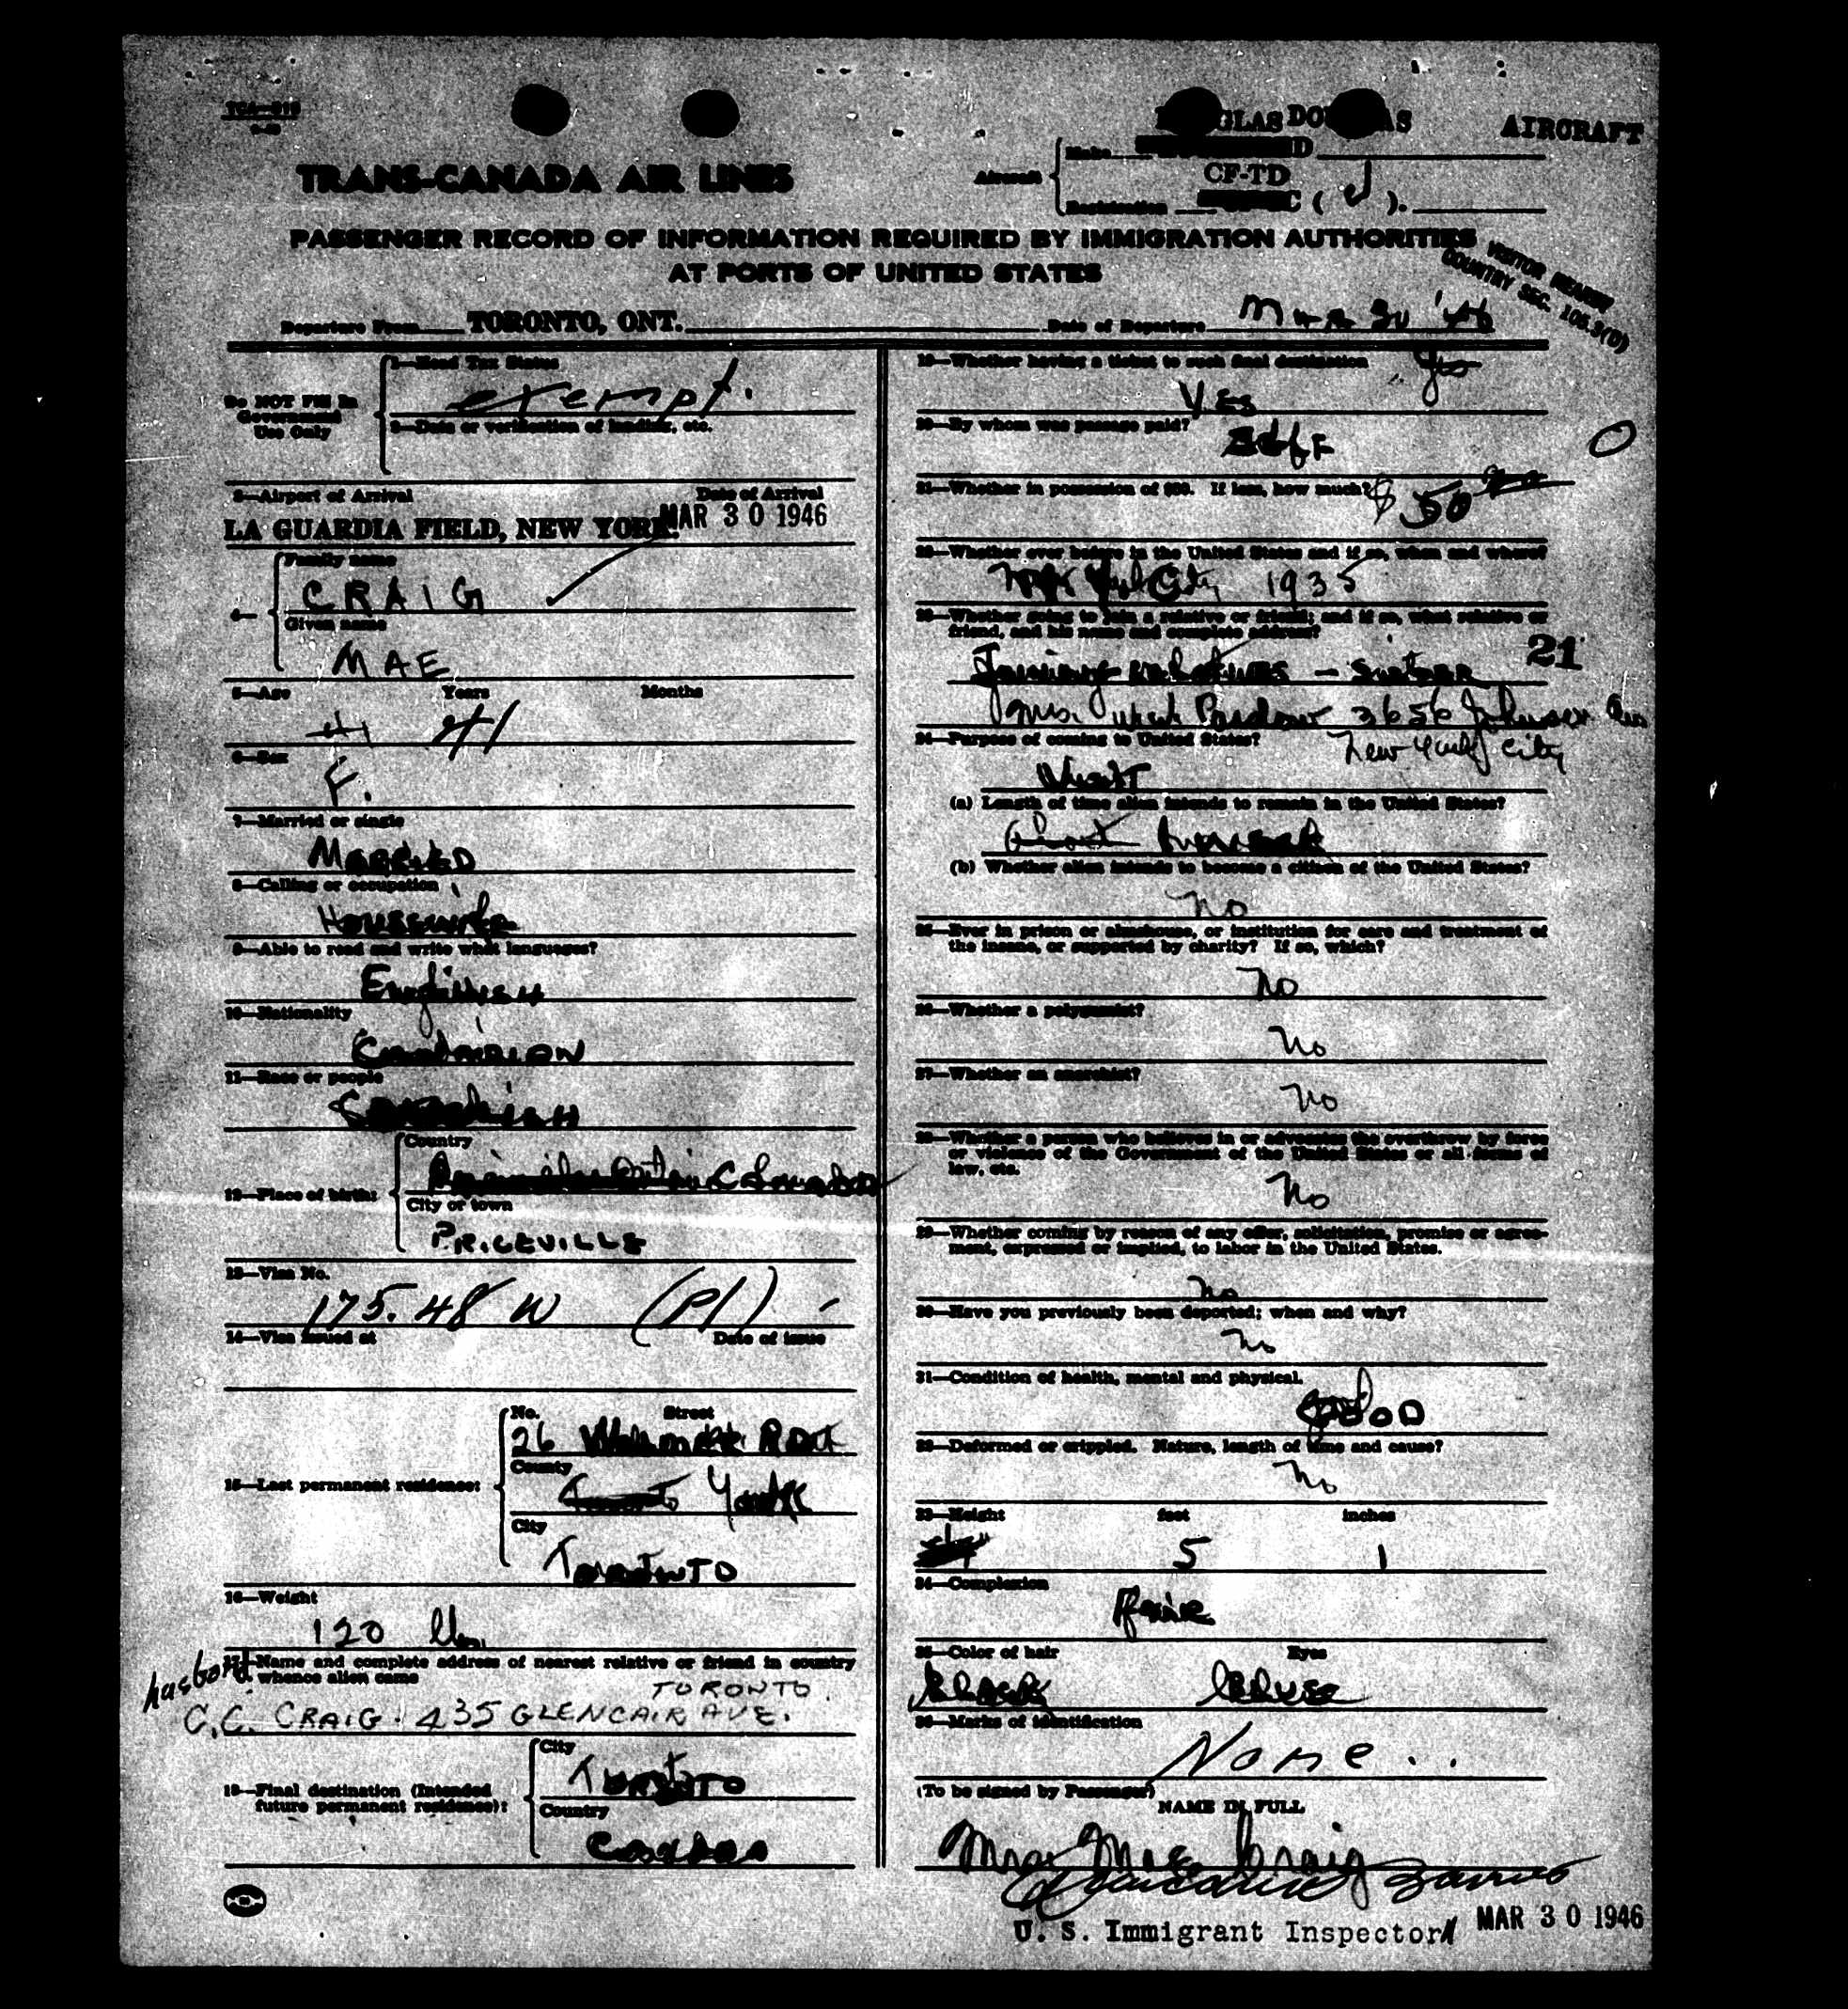 TCA-
TRANS-CANADA AIR LINES
DOUGLAS AIRCRAFT
Aircraft
Make
CF-TD
Registration
C ( J ).
PASSENGER RECORD OF INFORMATION REQUIRED BY IMMIGRATION AUTHORITIES
AT PORTS OF UNITED STATES
VISITOR
COUNTRY SEC.
Departure From TORONTO, ONT. Date of Departure Mar 30 '46
Do NOT Fill In
Government
Use Only
1—Head Tax Status
exempt.
2—Date or verification of landing, etc.
3—Airport of Arrival Date of Arrival
LA GUARDIA FIELD, NEW YORK. MAR 30 1946
4—
Family name
CRAIG
Given name
MAE
5—Age Years Months
41 41
6—Sex
F.
7—Married or single
MARRIED
8—Calling or occupation
Housewife
9—Able to read and write what languages?
English
10—Nationality
Canadian
11—Race or people
12—Place of birth:
Country
City or town
PRICEVILLE
13—Visa No.
175.48 W (P1)
14—Visa issued at Date of issue
15—Last permanent residence:
No. Street
26
County
Toronto York
City
Toronto
16—Weight
120 lbs.
husband
17—Name and complete address of nearest relative or friend in country
whence alien came
TORONTO.
C.C. CRAIG. 435 GLENCAIR AVE.
18—Final destination (Intended
future permanent residence):
City
Toronto
Country
Canada
19—Whether having a ticket to such final destination Yes
Yes
20—By whom was passage paid?
Self
21—Whether in possession of $50. If less, how much? $50
22—Whether ever before in the United States and if so, when and where?
New York City 1935
23—Whether going to join a relative or friend; and if so, what relative or
friend, and his name and complete address?
21
Joining relatives — Sister
Mrs. 3656 Johnson Ave
New York City
24—Purpose of coming to United States?
Visit
(a) Length of time alien intends to remain in the United States?
About
(b) Whether alien intends to become a citizen of the United States?
No
25—Ever in prison or almshouse, or institution for care and treatment of
the insane, or supported by charity? If so, which?
No
26—Whether a polygamist?
No
27—Whether an anarchist?
No
28—Whether a person who believes in or advocates the overthrow by force
or violence of the Government of the United States or all forms of
law, etc.
No
29—Whether coming by reason of any offer, solicitation, promise or agree-
ment, expressed or implied, to labor in the United States.
No
30—Have you previously been deported; when and why?
No
31—Condition of health, mental and physical.
Good
32—Deformed or crippled. Nature, length of time and cause?
No
33—Height feet inches
5 1
34—Complexion
Fair
35—Color of hair Eyes
Black Blue
36—Marks of identification
None..
(To be signed by Passenger)
NAME IN FULL
Mrs. Mae Craig
U. S. Immigrant Inspector MAR 30 1946